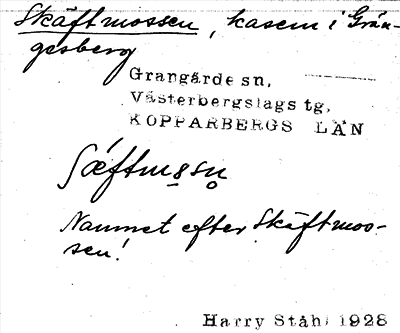 Skäftmossen, kasern i Grän-
gesberg
Grangärde sn,
Västerbergslags tg,
KOPPARBERGS LÄN
Namnet efter Skäftmos-
sen!
Harry Ståhl 1928